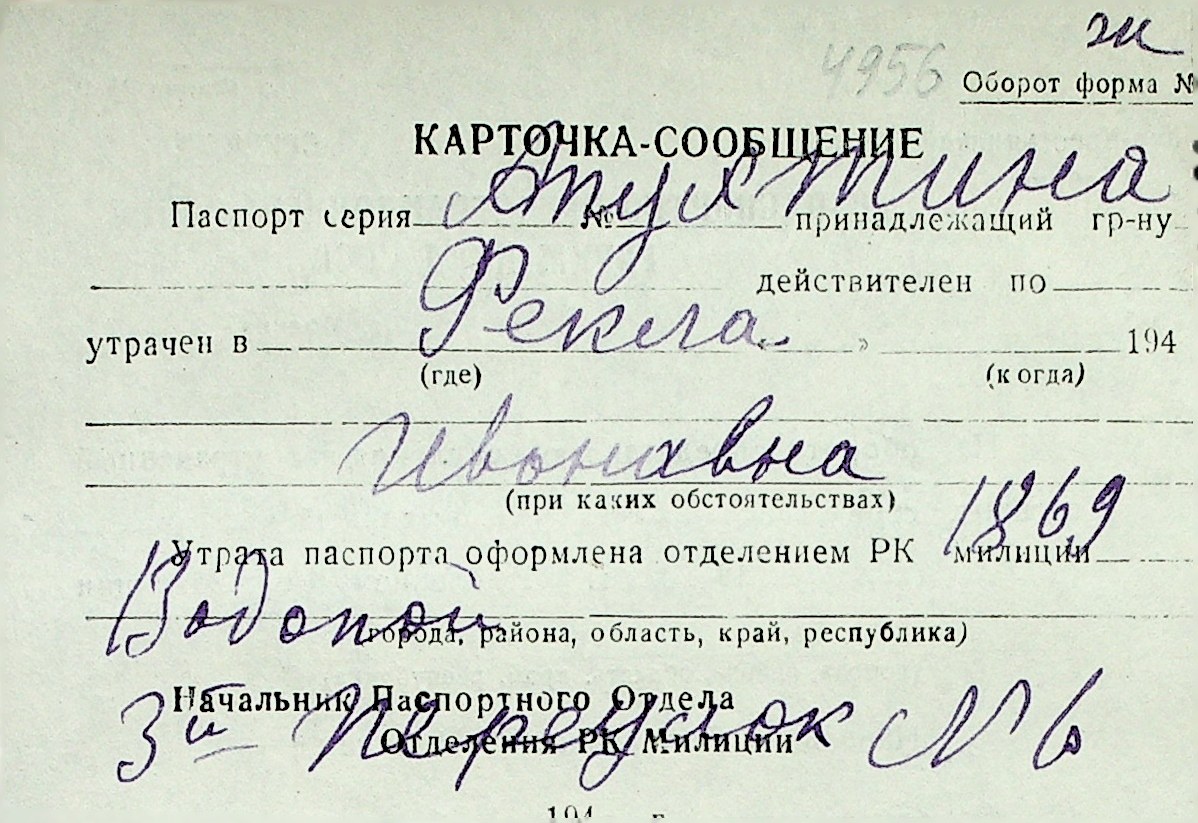 ж
4956
Оборот форма №
КАРТОЧКА-СООБЩЕНИЕ
Апухтина
Паспорт серия № принадлежащий гр-ну
действителен по
Фекла
утрачен в « » 194
(где) (когда)
Ивановна
(при каких обстоятельствах)
1869
Утрата паспорта оформлена отделением РК милиции
Водопой
города, района, область, край, республика)
Начальник Паспортного Отдела
3й Переулок № 6
Отделения РК Милиции
194 г.